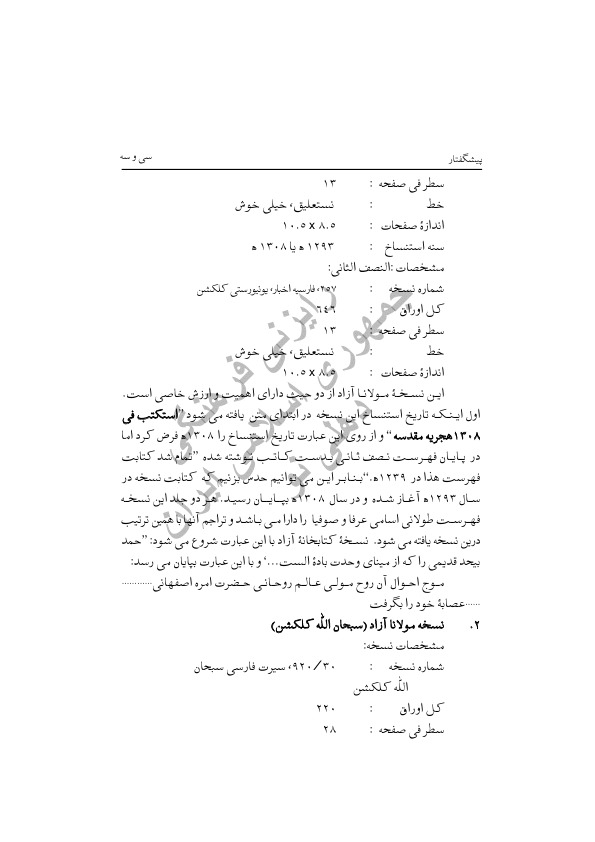 پیشگفتار	سی و سه
سطر فی صفحه : ۱۳
خط : نستعلیق، خیلی خوش
اندازهٔ صفحات : ۸.۵ x ۱۰.۵
سنه استنساخ : ۱۲۹۳ ھ یا ۱۳۰۸ ھ
مشخصات :النصف الثانی:
شماره نسخه : ۲۵۷، فارسیه اخبار، یونیورستی کلکشن
کل اوراق : ۶۴۶
سطر فی صفحه : ۱۳
خط : نستعلیق، خیلی خوش
اندازهٔ صفحات : ۸.۵ x ۱۰.۵
این نسخهٔ مولانا آزاد از دو حیث دارای اهمیت و ارزش خاصی است.
اول اینکه تاریخ استنساخ این نسخه در ابتدای متن یافته می شود ”استکتب فی
۱۳۰۸هجریه مقدسه“ و از روی این عبارت تاریخ استنساخ را ۱۳۰۸ھ فرض کرد اما
در پایان فهرست نصف ثانی بدست کاتب نوشته شده ”تمام شد کتابت
فهرست هذا در ۱۲۳۹ھ.“بنابر این می توانیم حدس بزنیم که کتابت نسخه در
سال ۱۲۹۳ھ آغاز شده و در سال ۱۳۰۸ھ بپایان رسید. هر دو جلد این نسخه
فهرست طولانی اسامی عرفا و صوفیا را دارا می باشد و تراجم آنها با همین ترتیب
درین نسخه یافته می شود. نسخهٔ کتابخانهٔ آزاد با این عبارت شروع می شود: ”حمد
بیحد قدیمی را که از مینای وحدت بادهٔ الست...‘ و با این عبارت بپایان می رسد:
موج احوال آن روح مولی عالم روحانی حضرت امره اصفهانی............
......عصابهٔ خود را بگرفت
۲. نسخه مولانا آزاد (سبحان اللّٰه کلکشن)
مشخصات نسخه:
شماره نسخه : ۹۲۰/۳۰، سیرت فارسی سبحان
اللّٰه کلکشن
کل اوراق : ۲۲۰
سطر فی صفحه : ۲۸
رایزنی فرهنگی
جمهوری اسلامی ایران
دهلی نو